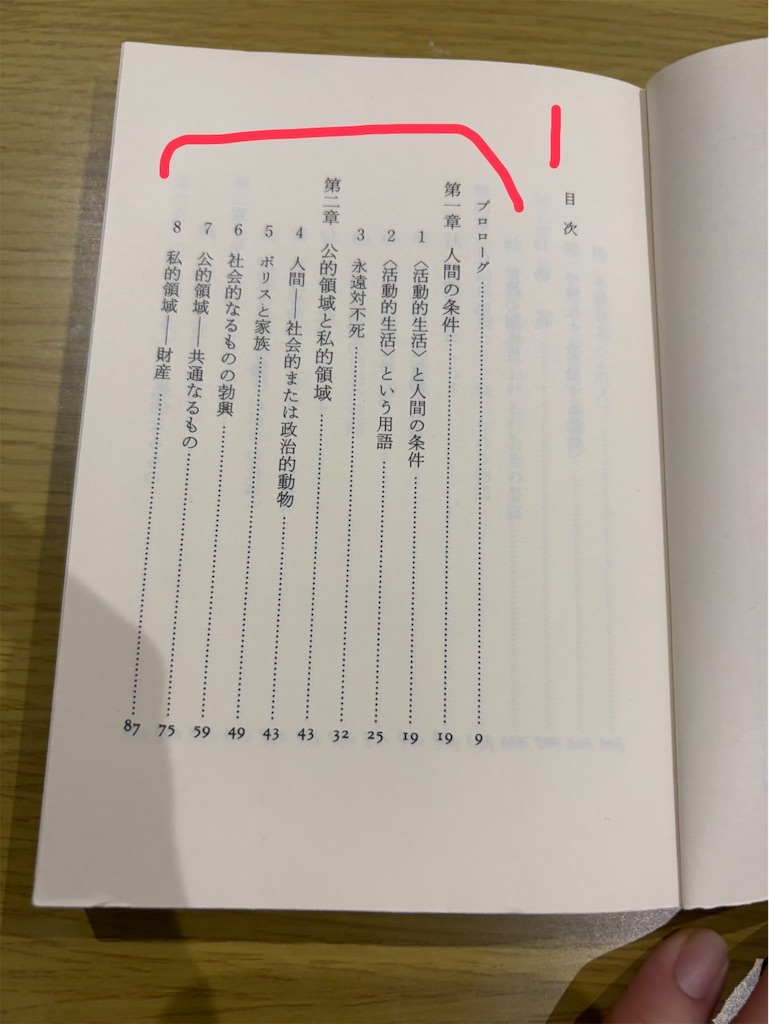 目次
プロローグ……9
第一章 人間の条件……19
1 〈活動的生活〉と人間の条件……19
2 〈活動的生活〉という用語……25
3 永遠対不死……32
第二章 公的領域と私的領域……43
4 人間――社会的または政治的動物……43
5 ポリスと家族……49
6 社会的なるものの勃興……59
7 公的領域――共通なるもの……75
8 私的領域――財産……87